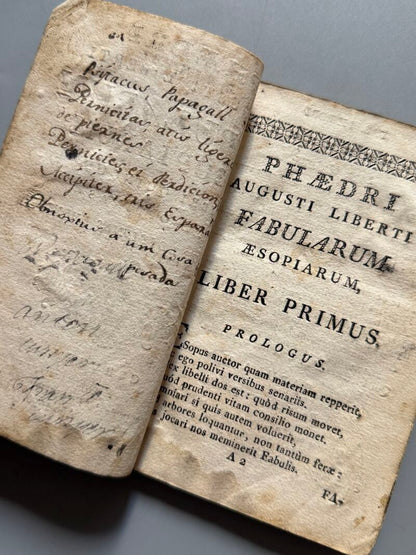 Psytacus Papagall
Pernicitas, atis liger
de piernes
Pernicies, ei Perdicion
Accipiter, tris Esparv
Obnoxius a um Cosa
posada
PHÆDRI
AUGUSTI LIBERTI
FABULARUM
ÆSOPIARUM,
LIBER PRIMUS.
PROLOGUS.
Esopus auctor quam materiam repperit,
ego polivi versibus senariis.
ex libelli dos est: quòd risum movet,
quód prudenti vitam consilio monet.
mniari si quis autem voluerit,
arbores loquantur, non tantùm feræ;
jocari nos meminerit Fabulis.
A 2
FA-